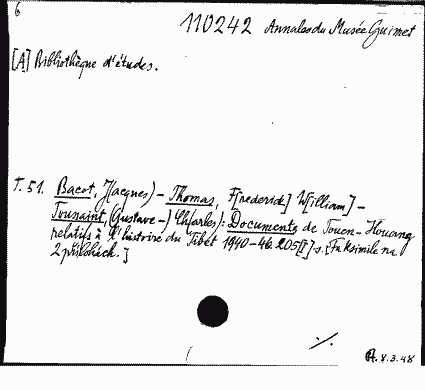 6
110242 Annales du Musée Guimet
[A] Bibliothèque d'études.
T. 51. Bacot, J(acques) – Thomas, F[rederick] W[illiam] –
Toussaint, (Gustave-) Ch(arles): Documents de Touen-Houang
relatifs à l'histoire du Tibet 1940-46. 205[1] s. [Faksimile na
2 přílohách.]
./.
8.3.48